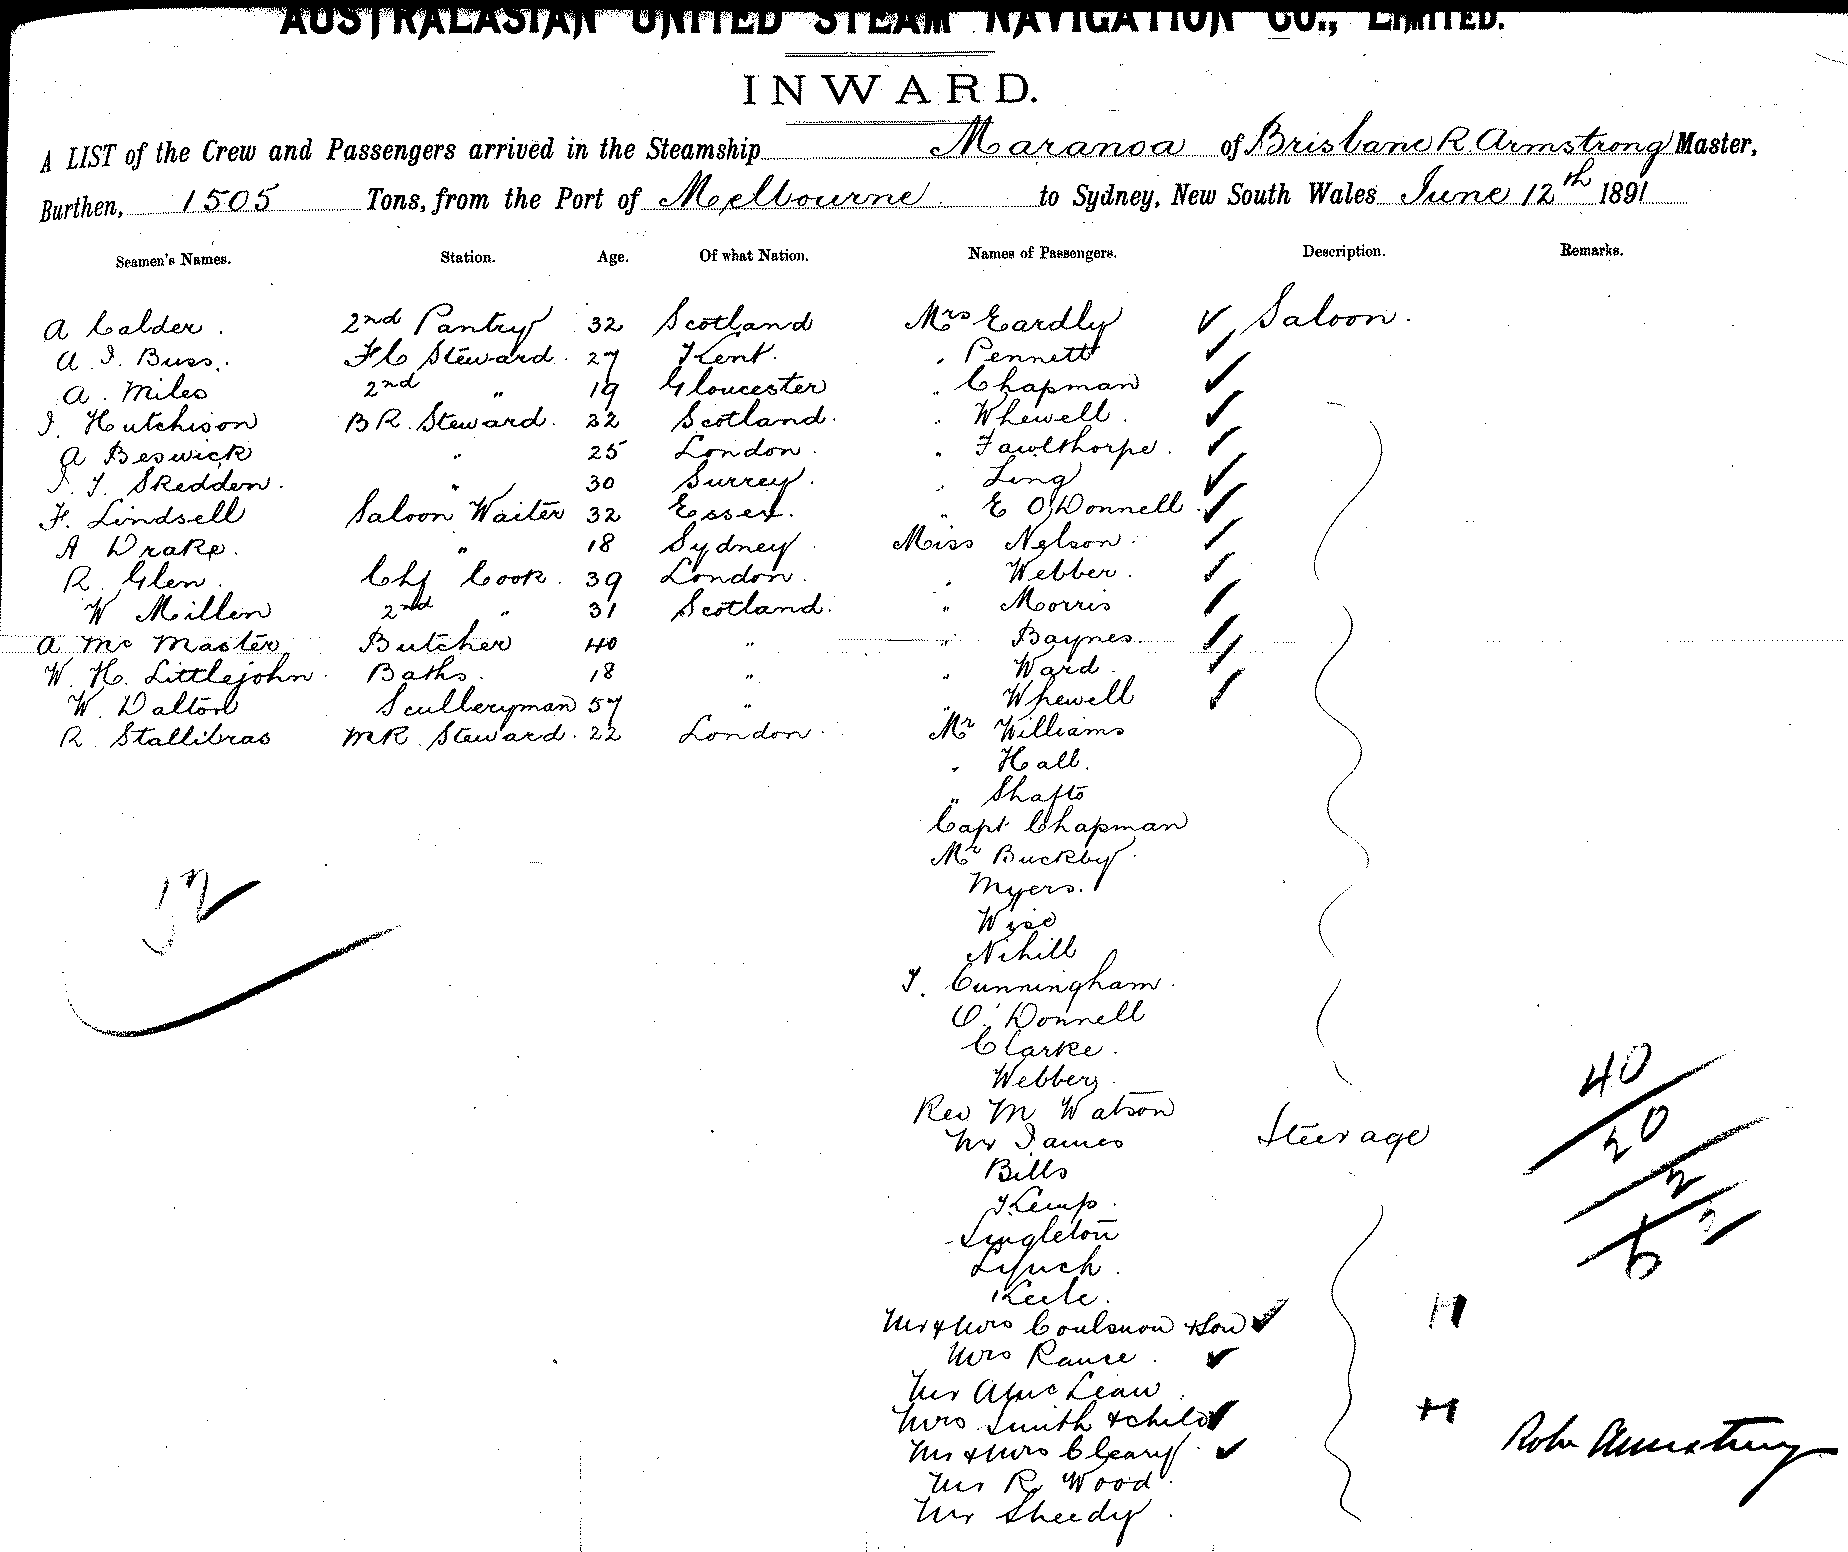 AUSTRALASIAN UNITED STEAM NAVIGATION CO., LIMITED.
INWARD.
A LIST of the Crew and Passengers arrived in the Steamship Maranoa of Brisbane R. Armstrong Master,
Burthen, 1505 Tons, from the Port of Melbourne to Sydney, New South Wales June 12th 1891
Seamen's Names. Station. Age. Of what Nation. Names of Passengers. Description. Remarks.
A Calder . 2nd Pantry 32 Scotland Mrs Eardly ✓ Saloon .
A. J. Buss . F C Steward . 27 Kent . " Pennett ✓
A . Miles 2nd " 19 Gloucester " Chapman ✓
J. Hutchison B R. Steward . 32 Scotland . " Whewell . ✓
A Beswick " 25 London . " Fawlthorpe . ✓
J. J. Skedden . " 30 Surrey . " Ling ✓
F. Lindsell Saloon Waiter 32 Essex . " E O'Donnell . ✓
A Drake . " 18 Sydney . Miss Nelson . ✓
R. Glen . Chf Cook . 39 London . " Webber . ✓
W Millen 2nd " 31 Scotland . " Morris ✓
A Mc Master Butcher 40 " " Baynes . ✓
W. H. Littlejohn . Baths . 18 " " Ward . ✓
W. Dalton Sculleryman 57 " " Whewell ✓
R Stallibras M R Steward . 22 London . Mr Williams
" Hall .
" Shafto
Capt Chapman
Mr Buckby .
Myers .
Wise
Nihill
J. Cunningham .
O'Donnell
Clarke .
Webber
Rev M Watson
Mr James Steerage
Bills
Kemp .
Singleton
Lynch .
Keele .
Mr & Mrs Coulsnon & Son ✓ H
Mrs Rance . ✓
Mr A Mc Lean .
Mrs Smith & child ✓ H
Mr & Mrs Cleary . ✓
Mr R Wood .
Mr Sheedy .
52
40
20
2
Robt Armstrong